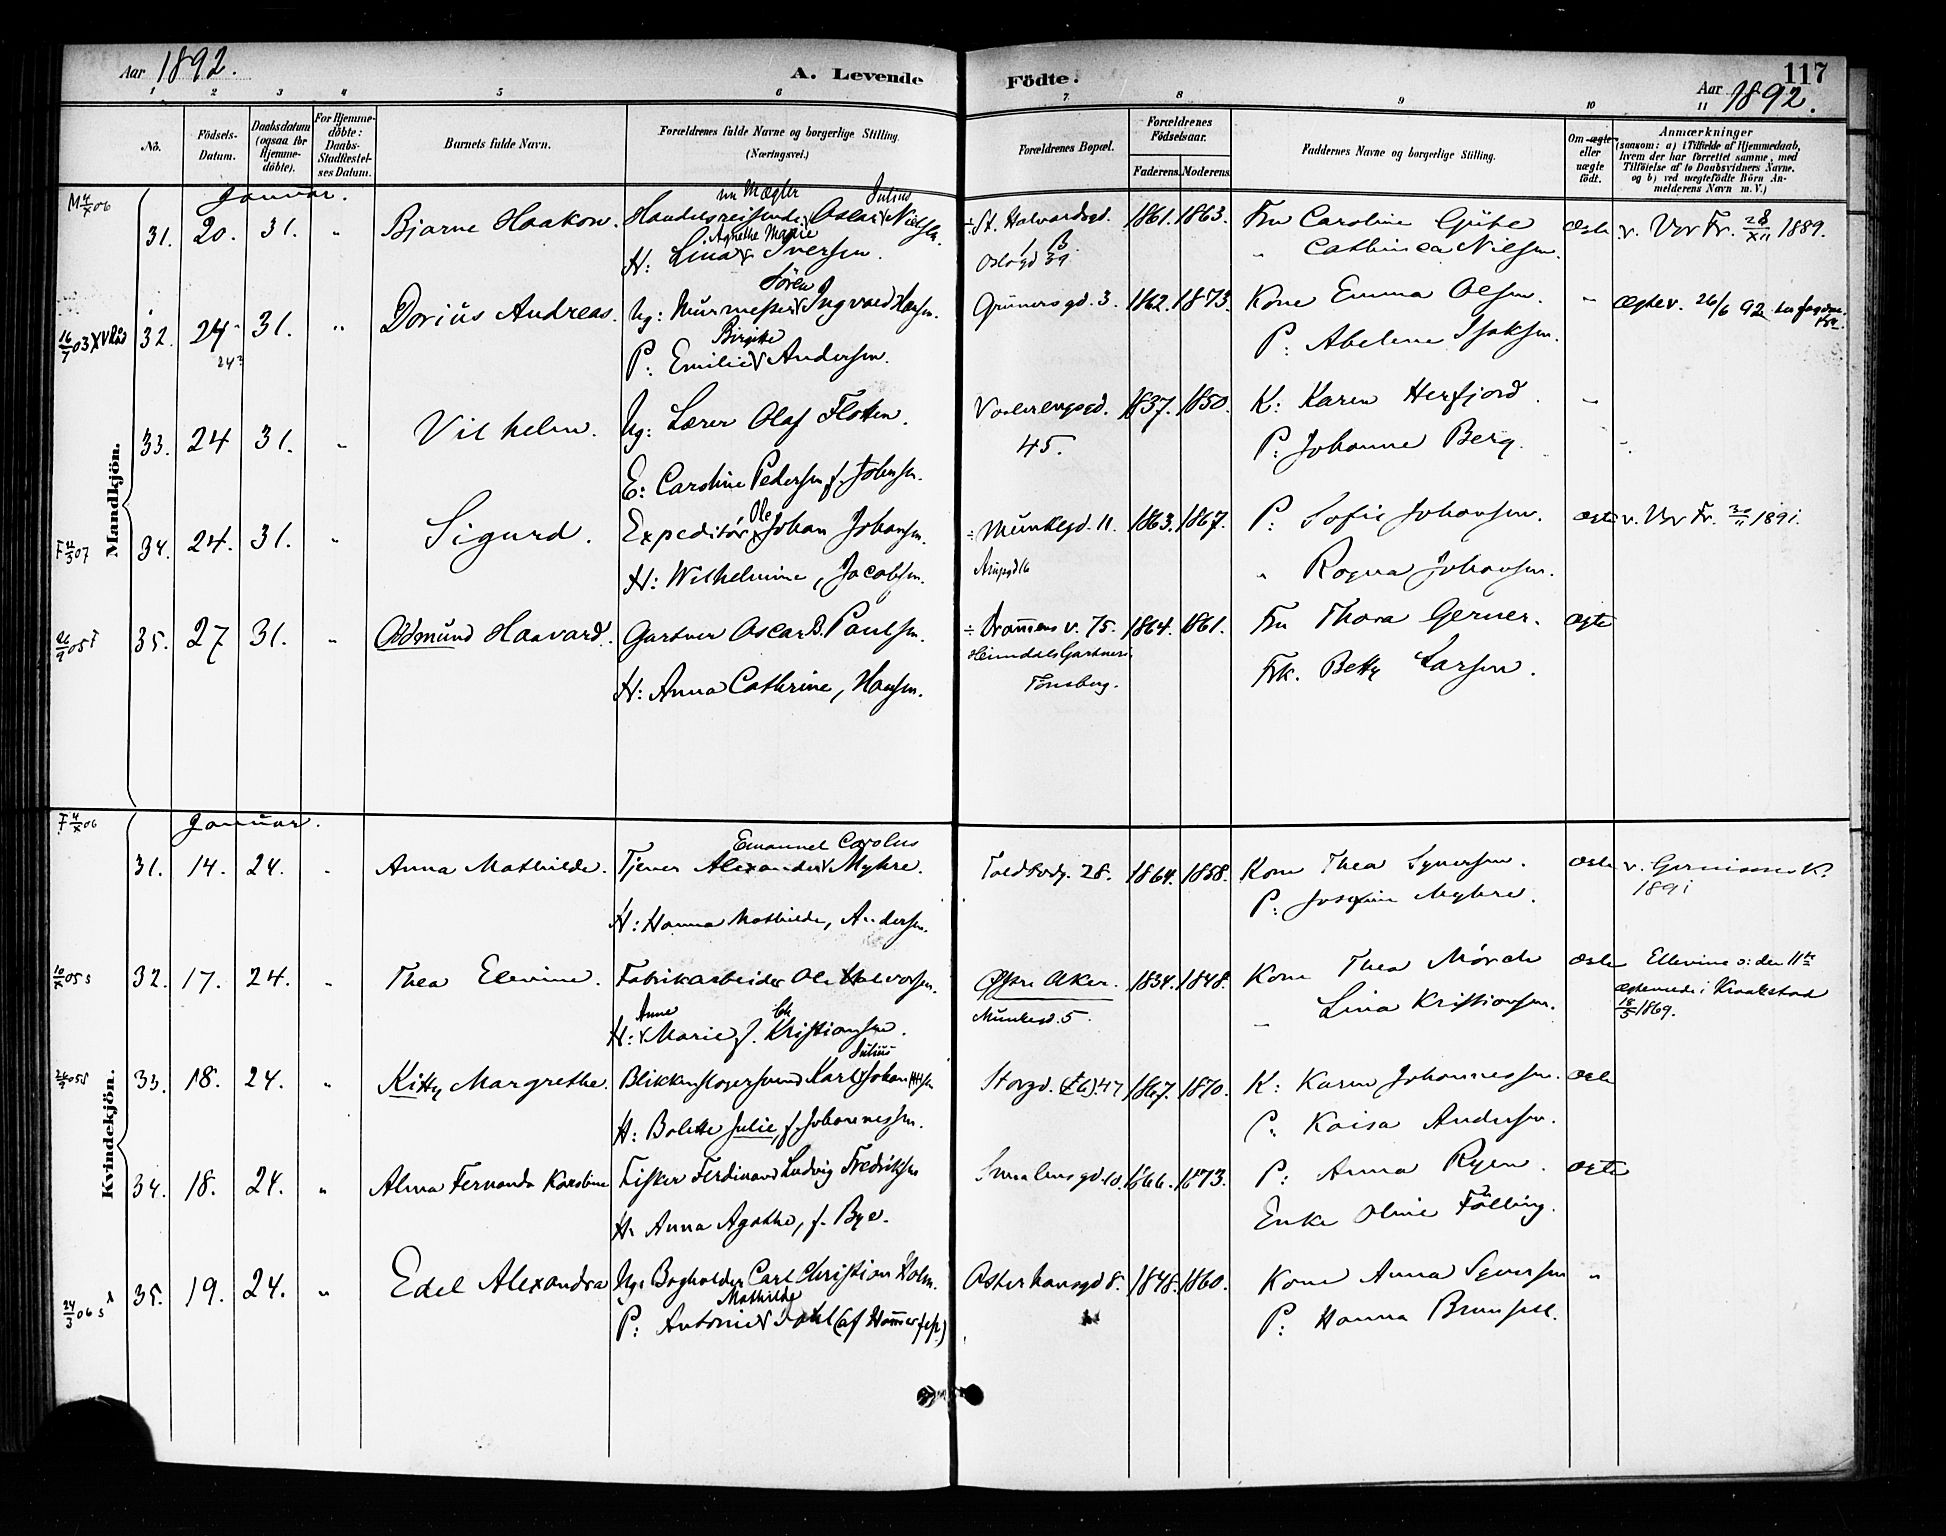 Aar 1892.
A. Levende
Födte.
117
Aar 1892.
1 2 3 4 5 6 7. 8 9 10 11
No.
Födsels-Datum.
Daabsdatum (ogsaa for Hjemmedöbte).
For Hjemmedöbte: Daabs-Stadfæstelses Datum.
Barnets fulde Navn.
Forældrenes fulde Navne og borgerlige Stilling. (Næringsvei.)
Forældrenes Bopæl.
Forældrenes Födselsaar.
Faderens. Moderens.
Faddernes Navne og borgerlige Stilling.
Om ægte eller uægte født.
Anmærkninger
(saasom: a) i Tilfælde af Hjemmedaab, hvem der har forrettet samme, med Tilföielse af to Daabsvidners Navne, og b) ved uægtefödte Börn Anmelderens Navn m. V.)
Mandkjön.
Januar.
nu Mægler Julius
31. 20. 31. " Bjarne Haakon. Handelsreisende Oscar Nielsen. ÷ St. Halvardsgd. 1861. 1863. Fru Caroline Gjübe Ægte v. Vor Fr. 28/XII 1889.
Agnethe Marie
H: Lina Iversen. Oslogd 39 " Cathinca Nilsen.
Sören
32. 24. 31. " Dorius Andreas. Ug: Murmester Ingvald Hansen. Grünersgd. 3. 1862. 1873. Kone Emma Olsen. " Ægtev. 26/6 92
Birgithe
P: Emilie Andersen. P: Abelene Isaksen.
33. 24 31. " Vilhelm. Ug: Lærer Olaf Floten. Vaalerengsgd. 1837. 1850. K: Karen Herfjord. "
E: Caroline Pedersen f. Johnsen. 45. P: Johanne Berg.
Ole
34. 24. 31. " Sigurd. Expeditör Johan Johansen. ÷ Munkegd. 11. 1863. 1867. P: Sofie Johansen. Ægte v. Vor Fr. 30/11 1891.
H: Wilhelmine, Jacobsen. " Ragna Johansen.
35. 27 31. " Oddmund Haavard. Gartner Oscar B. Paulsen. ÷ Drammens v. 75. 1864. 1861. Fru Thora Gerner. Ægte
Heimdals Gartneri
H: Anna Cathrine, Hansen. Tönsberg. Frk. Betty Larsen.
Kvindekjön.
Januar.
Emanuel Carolus
31. 14. 24. " Anna Mathilde. Tjener Alexander Myhre. Toldbodg. 28. 1864. 1858. Kone Thea Syversen. Ægte v. Garnisons K.
1891
H: Hanna Mathilde, Andersen. P: Josefine Myhre.
32. 17. 24. " Thea Elevine. Fabrikarbeider Ole Halvorsen. Østre Aker. 1834. 1848. Kone Thea Mörch Ægte Ellevine o: den 11te
Anne
H: Marie f. Kristiansen. Munkegd. 5. " Lina Kristiansen. Ægteviede i Kraakstad
18/5 1869.
Julius
33. 18. 24. " Kitty Margrethe. Blikkenslagersvend Karl Johan Storgd. 47 1867. 1870. K: Karen Johannessen. Ægte
H: Bolette Julie, f. Johannessen. P: Kaisa Andersen.
34. 18. 24. " Alma Fernanda Karoline Fisker Ferdinand Ludvig Fredriksen Smaalensgd. 10. 1866. 1873. P: Anna Ryen. Ægte
H. Anna Agathe, f. Bye. Enke Oline Fölling.
35. 19. 24. " Edel Alexandra Ug: Bogholder Carl Christian Holm. Østerhausgd 8. 1848. 1860. Kone Anna Syversen "
Mathilde
P: Antonie Dahl (af Hammerfest) P: Hanna Brunsell.